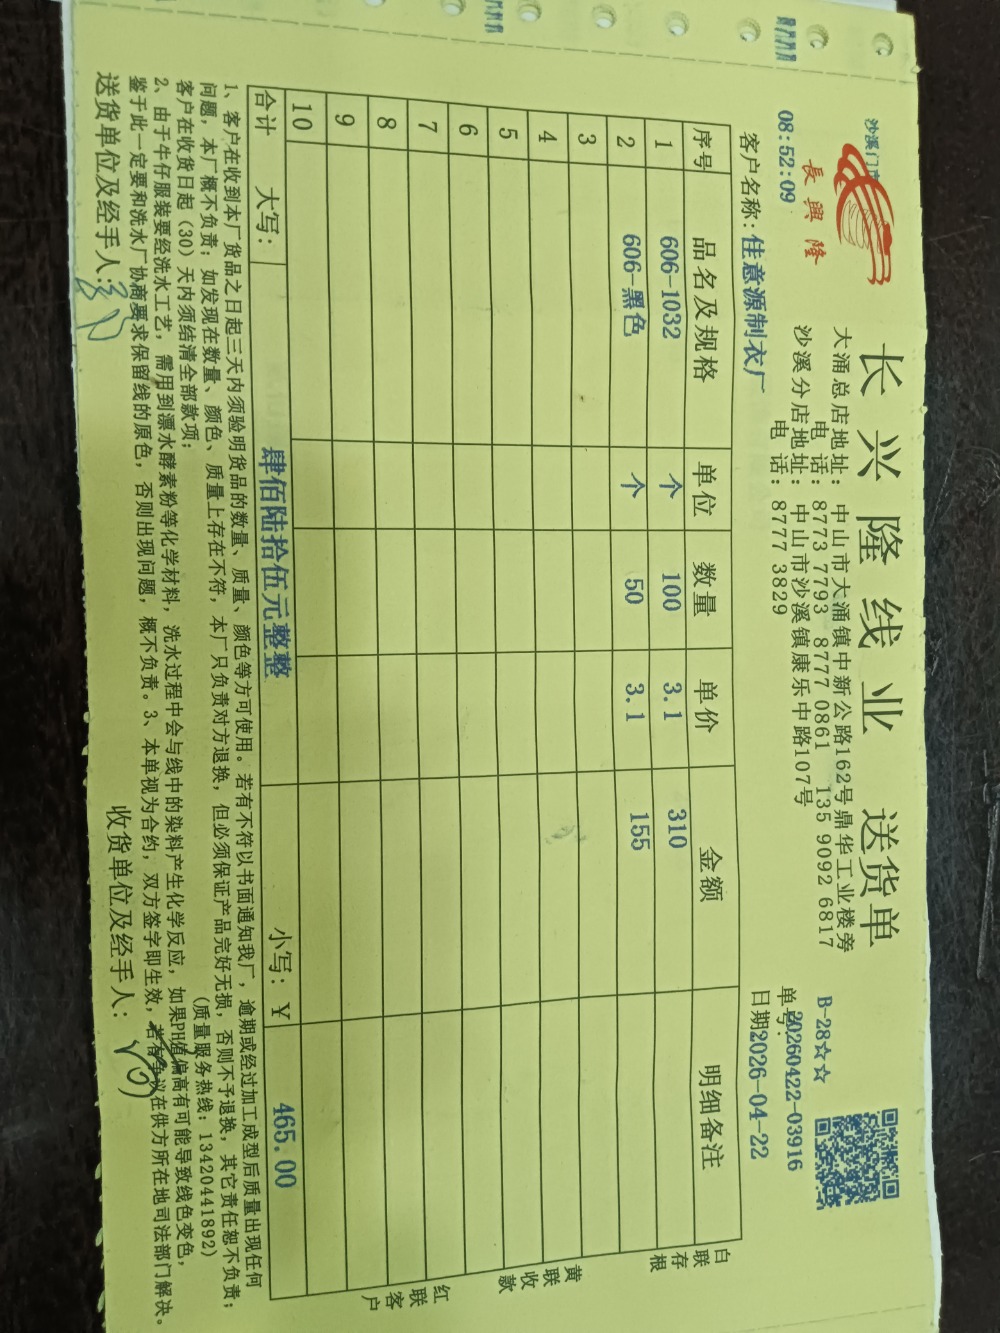 沙溪门市
長興隆
08:52:09
长兴隆线业 送货单
大涌总店地址: 中山市大涌镇中新公路162号鼎华工业楼旁
电 话: 8773 7793 8777 0861 135 9092 6817
沙溪分店地址: 中山市沙溪镇康乐中路107号
电 话: 8777 3829
B-28☆☆
单号: 20260422-03916
客户名称: 佳意源制衣厂
日期2026-04-22
序号 品名及规格 单位 数量 单价 金额 明细备注
1 606-1032 个 100 3.1 310
2 606-黑色 个 50 3.1 155
3
4
5
6
7
8
9
10
合计 大写: 肆佰陆拾伍元整整 小写: ¥ 465.00
白联存根
黄联收款
红联客户
1、客户在收到本厂货品之日起三天内须验明货品的数量、质量、颜色等方可使用。若有不符以书面通知我厂，逾期或经过加工成型后质量出现任何
问题，本厂概不负责；如发现在数量、颜色、质量上存在不符，本厂只负责对方退换，但必须保证产品完好无损，否则不予退换，其它责任恕不负责；
客户在收货日起（30）天内须结清全部款项； (质量服务热线: 13420441892)
2、由于牛仔服装要经洗水工艺，需用到漂水酵素粉等化学材料，洗水过程中会与线中的染料产生化学反应，如果PH值偏高有可能导致线色变色，
鉴于此一定要和洗水厂协商要求保留线的原色，否则出现问题，概不负责。3、本单视为合约，双方签字即生效，若有争议在供方所在地司法部门解决。
送货单位及经手人: 收货单位及经手人: